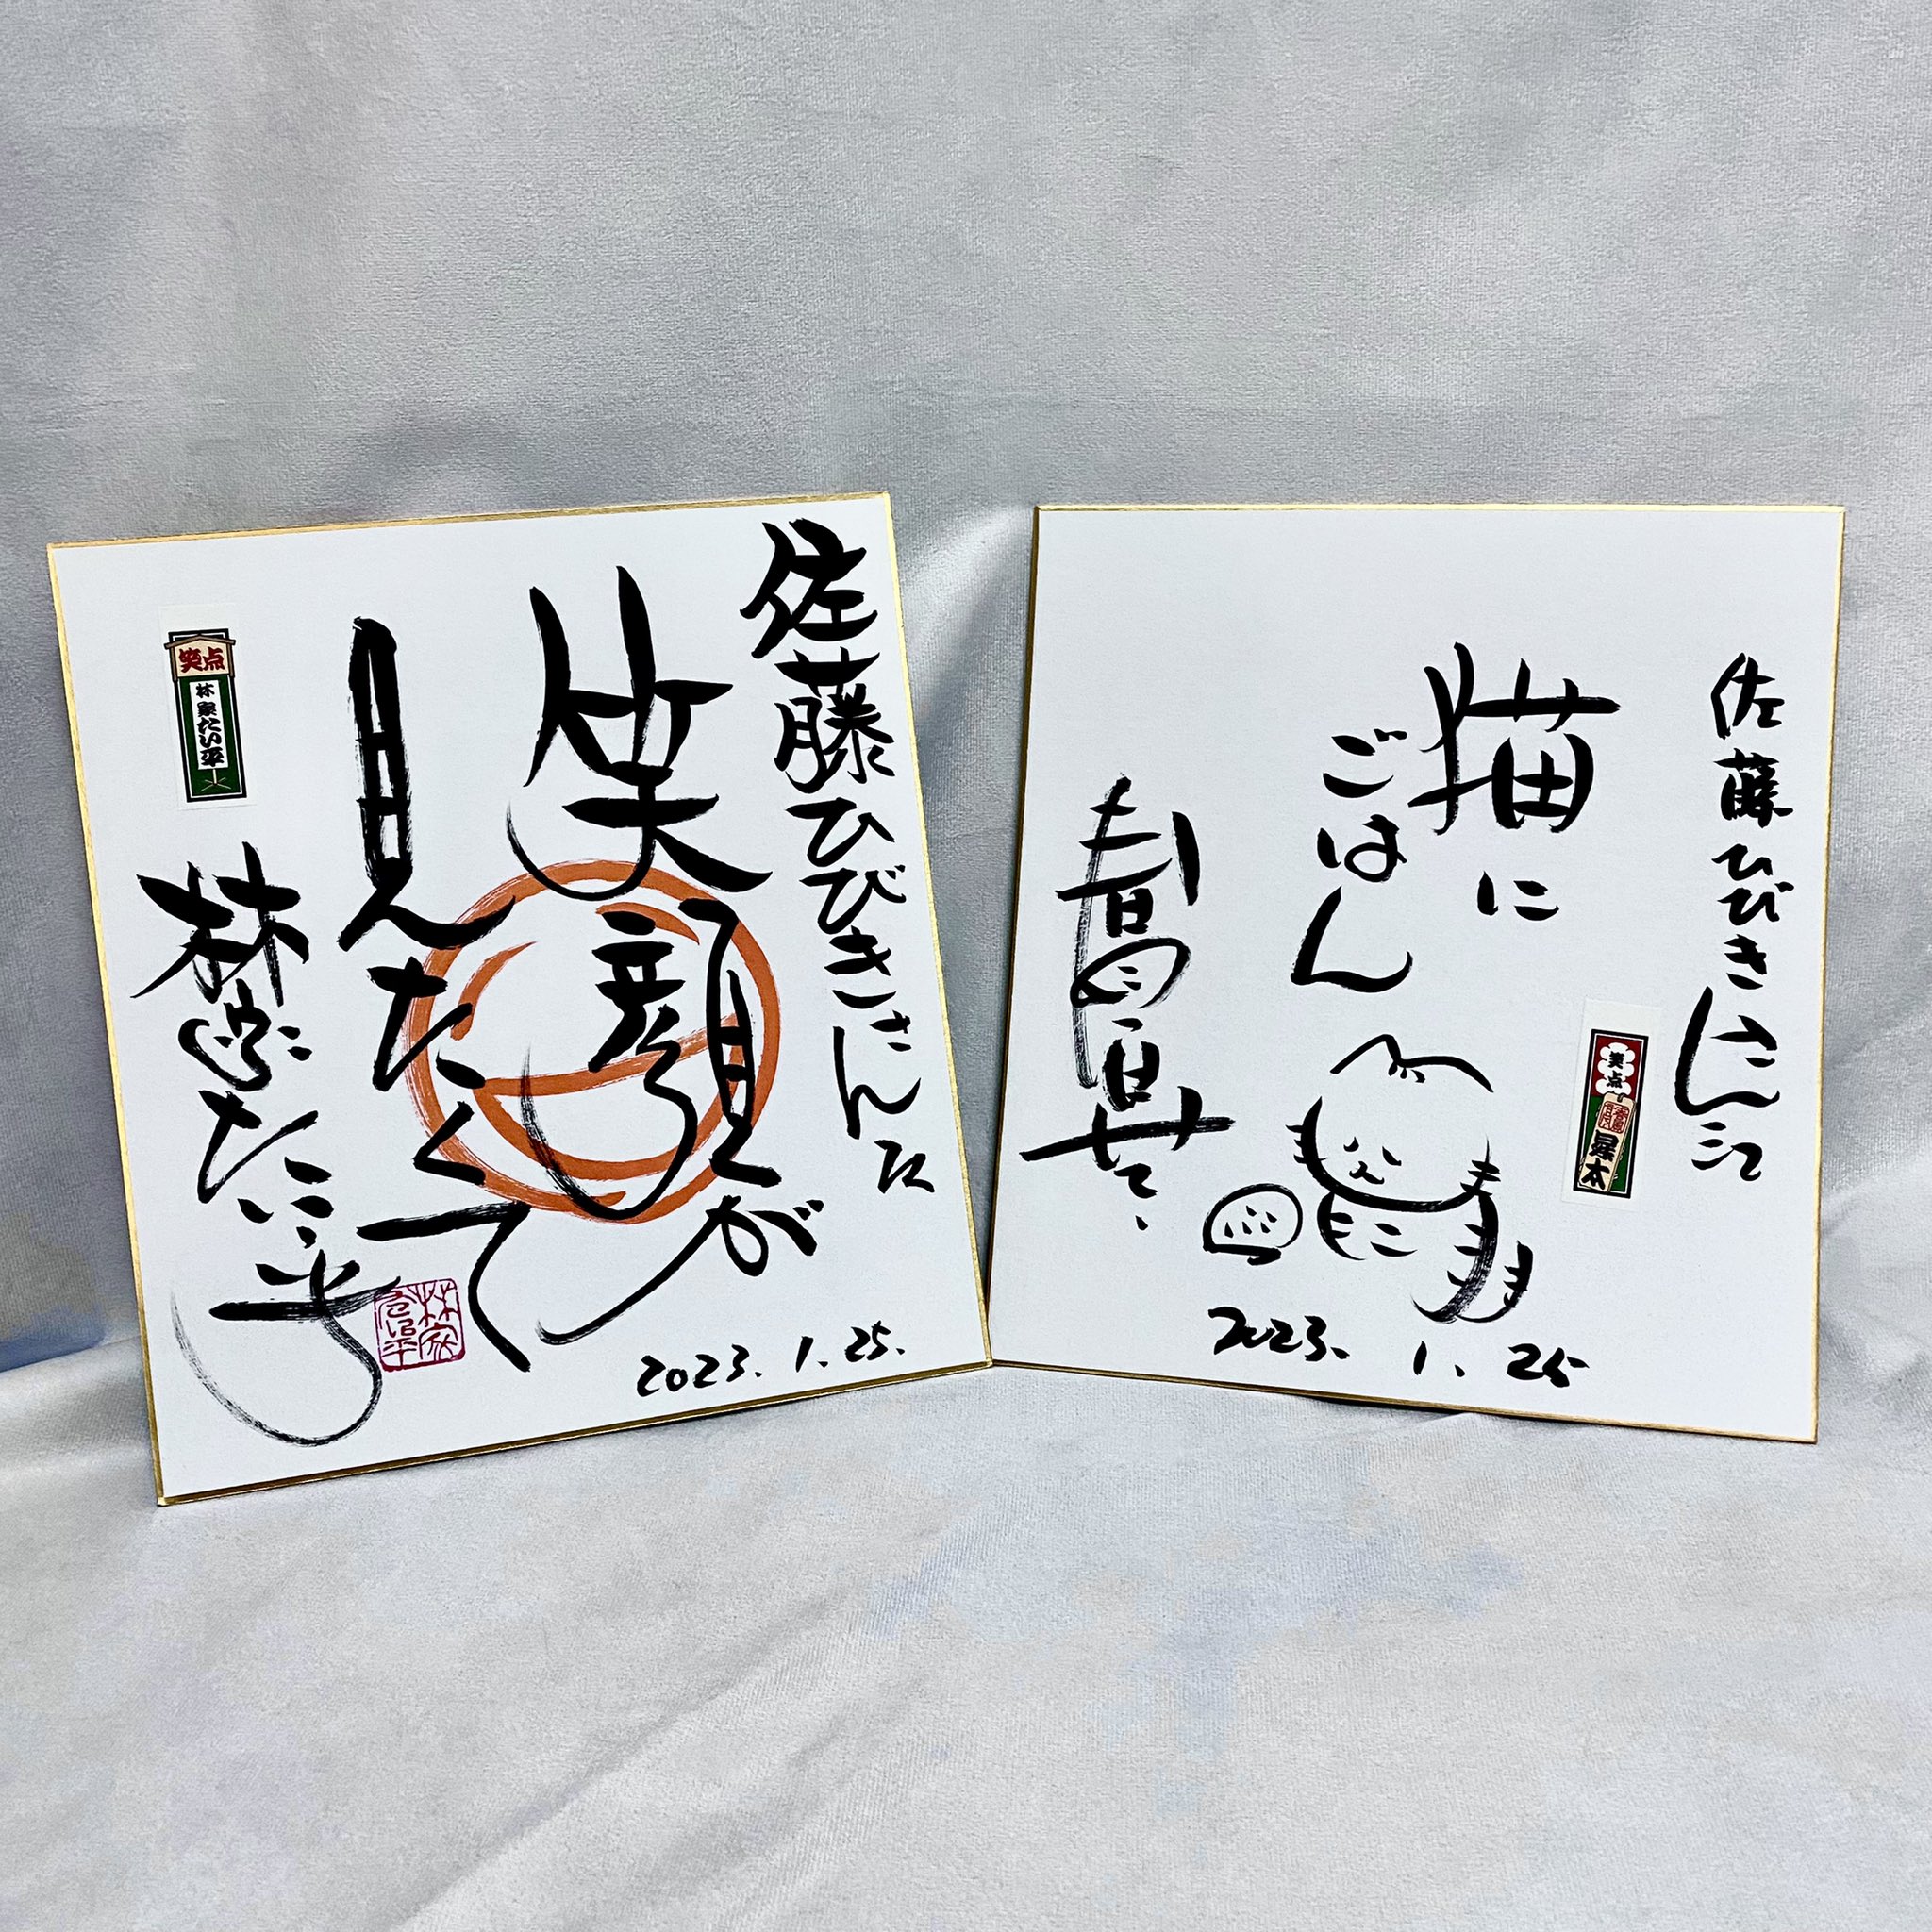 佐藤ひびきさん江
笑顔が
見たくて
林家たい平
2023.1.25.
笑点
林家たい平
林家
佐藤ひびきさん江
猫に
ごはん
春風亭
2023. 1. 25
笑点
昇太